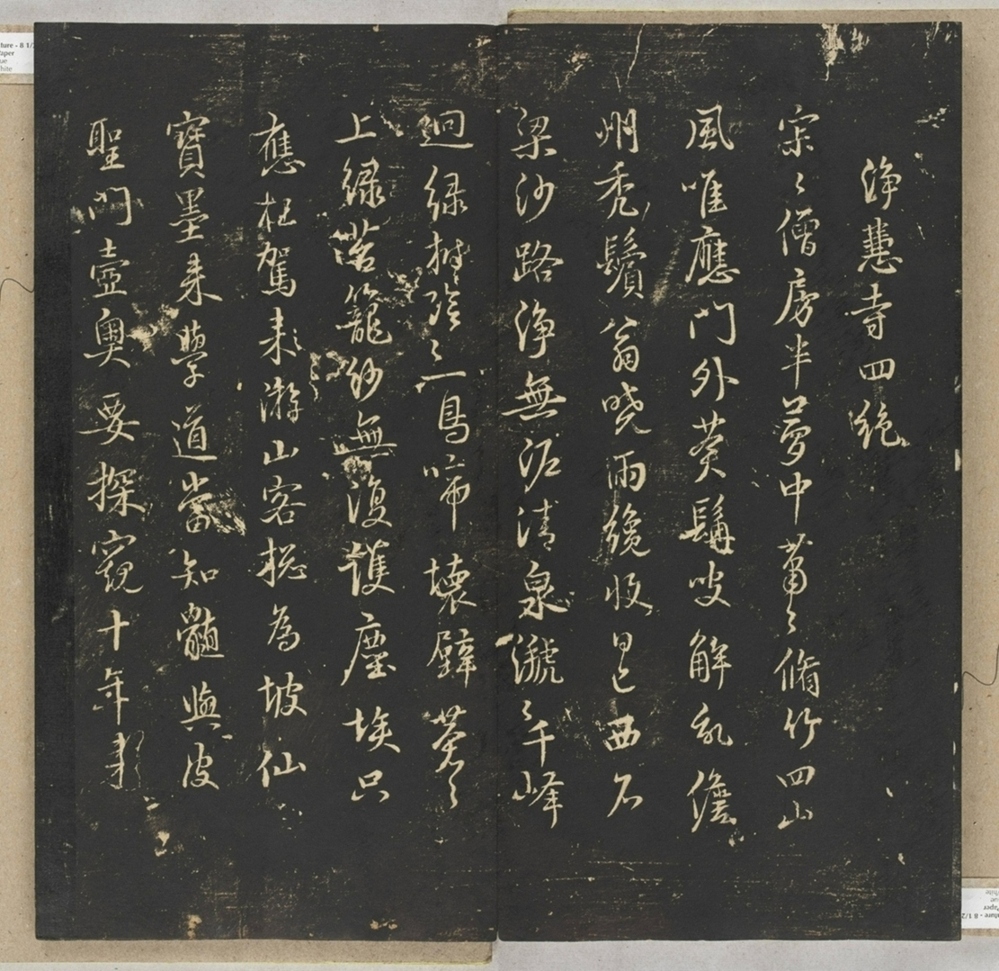 淨慧寺四絶
寂〻僧房半夢中蕭〻脩竹四山
風唯應門外黃鬚叟解亂儋
州禿鬢翁曉雨纔收日已西石
梁沙路淨無泥清泉㶁〻千峰
迴綠樹陰〻一鳥啼壞壁蒼〻
上綠苔籠紗無復護塵埃只
應枉駕來游山客摠為坡仙
寶墨來學道當知髓與皮
聖門壼奧要探窺十年